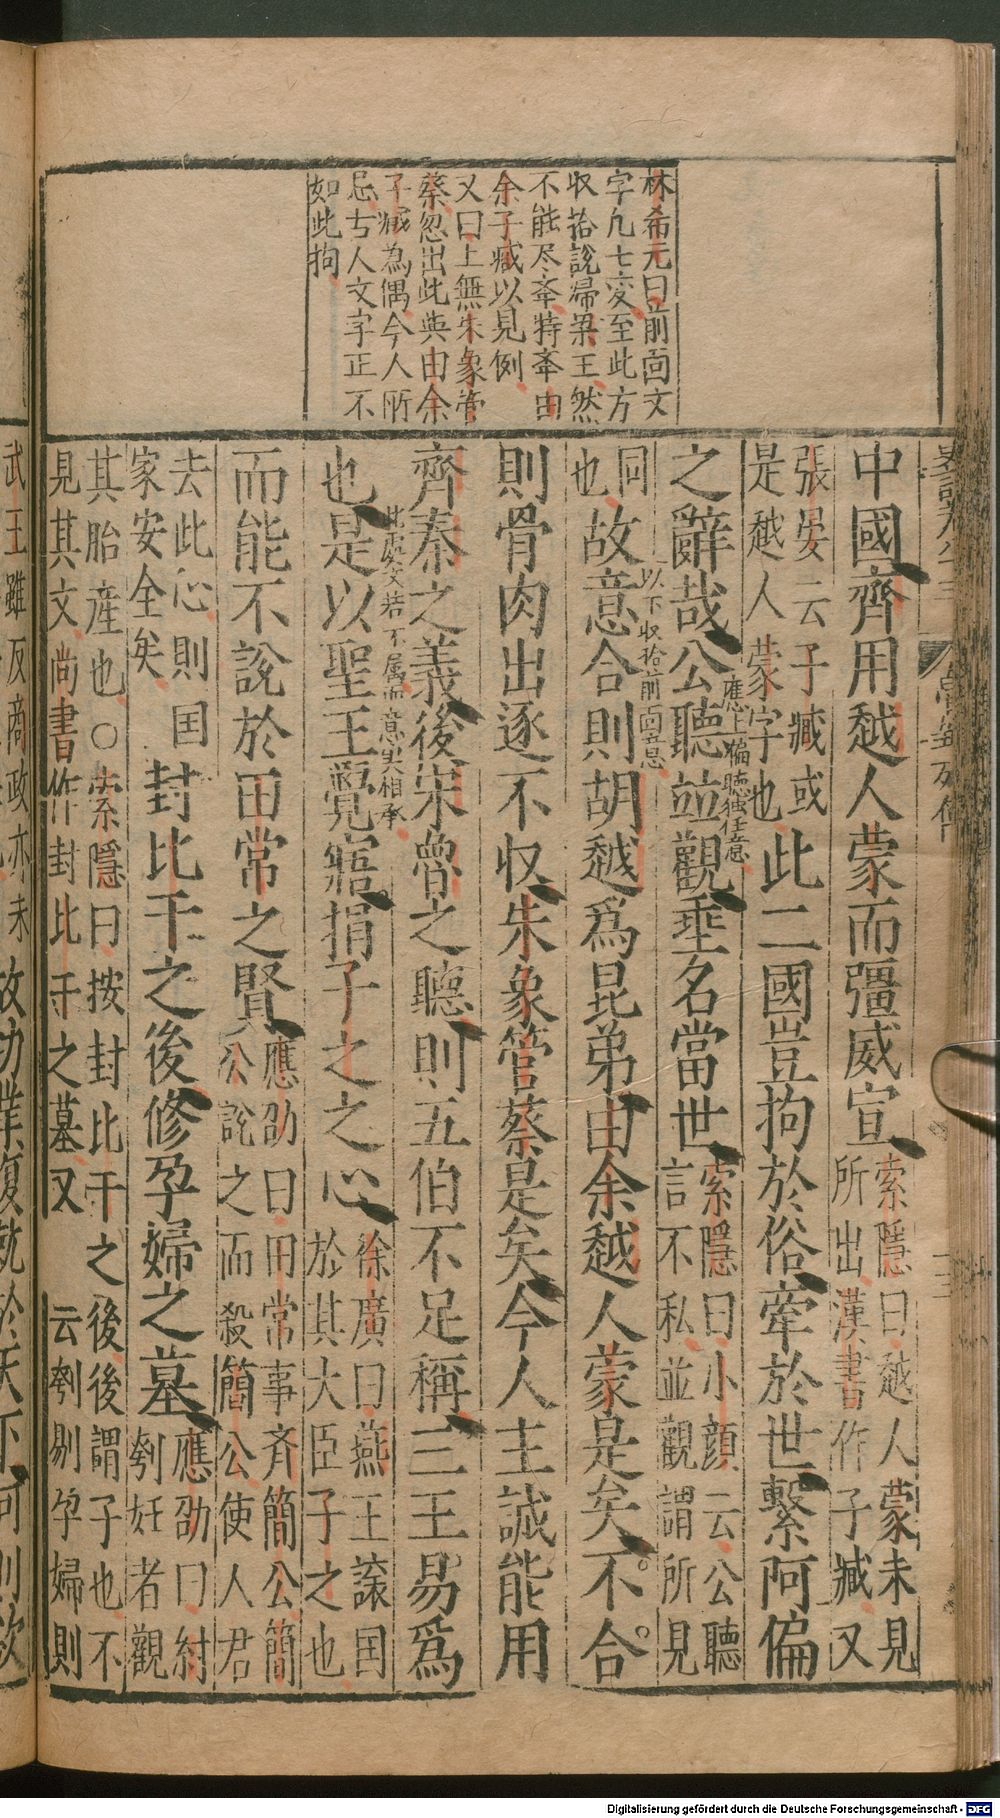 林希元曰前面文
字凡七変至此方
収拾說歸梁王然
不能尽牽特牽由
余子臧以見例
又曰上無朱象管
蔡忽出此與由余
子臧為偶今人所
忌古人文字正不
如此拘
中國齊用越人蒙而彊威宣索隱曰越人蒙未見
所出漢書作子臧又
張晏云子臧或
是越人蒙字也此二國豈拘於俗牽於世繫阿偏
之辭哉公聽並觀垂名當世索隱曰小顏云公聽
言不私並觀謂所見
應上偏聽独任意
同
也故意合則胡越爲昆弟由余越人蒙是矣不合
以下収拾前面意思
則骨肉出逐不収朱象管蔡是矣今人主誠能用
齊秦之義後宋魯之聽則五伯不足稱三王易爲
也是以聖王覺寤捐子之之心徐廣曰燕王讓国
於其大臣子之也
此處文若不属而意実相承
而能不說於田常之賢應劭曰田常事斉簡公簡
公說之而殺簡公使人君
去此心則国
家安全矣封比干之後修孕婦之墓應劭曰紂
刳妊者觀
其胎産也○索隱曰按封比干之後後謂子也不
見其文尚書作封比干之墓又云刳剔孕婦則
武王雖反商政亦未
故功業復就於天下何則欲
Digitalisierung gefördert durch die Deutsche Forschungsgemeinschaft - DFG